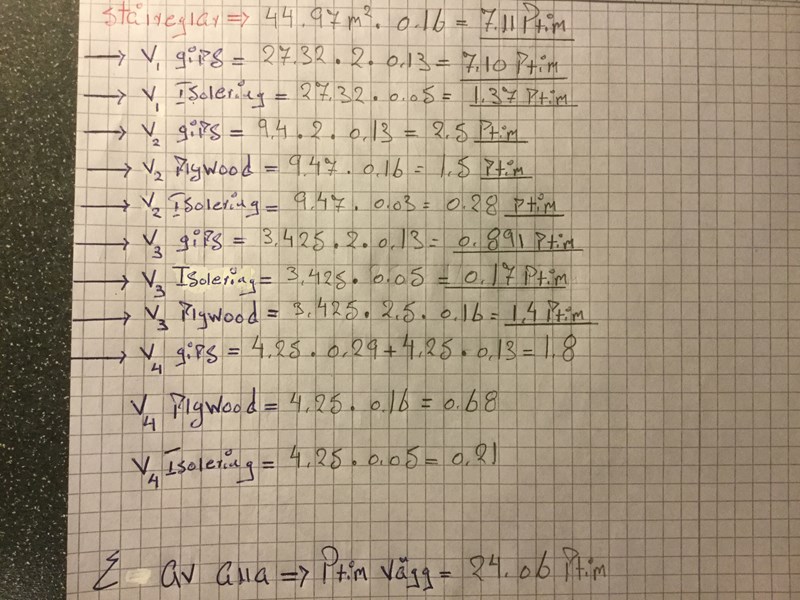 Stålreglar => 44.97 m². 0.16 = 7.11 Ptim
→ V1 gips = 27.32 . 2 . 0,13 = 7.10 Ptim
→ V1 Isolering = 27.32 . 0.05 = 1.37 Ptim
→ V2 gips = 9,4 . 2 . 0,13 = 2,5 Ptim
→ V2 Plywood = 9,47 . 0.16 = 1,5 Ptim
→ V2 Isolering = 9.47 . 0.03 = 0.28 Ptim
→ V3 gips = 3,425 . 2 . 0,13 = 0.891 Ptim
→ V3 Isolering = 3,425 . 0.05 = 0.17 Ptim
→ V3 Plywood = 3,425 . 2,5 . 0,16 = 1,4 Ptim
→ V4 gips = 4,25 . 0,29 + 4,25 . 0,13 = 1,8
V4 Plywood = 4,25 . 0,16 = 0.68
V4 Isolering = 4,25 . 0.05 = 0,21
Σ av alla => Ptim vägg = 24.06 Ptim